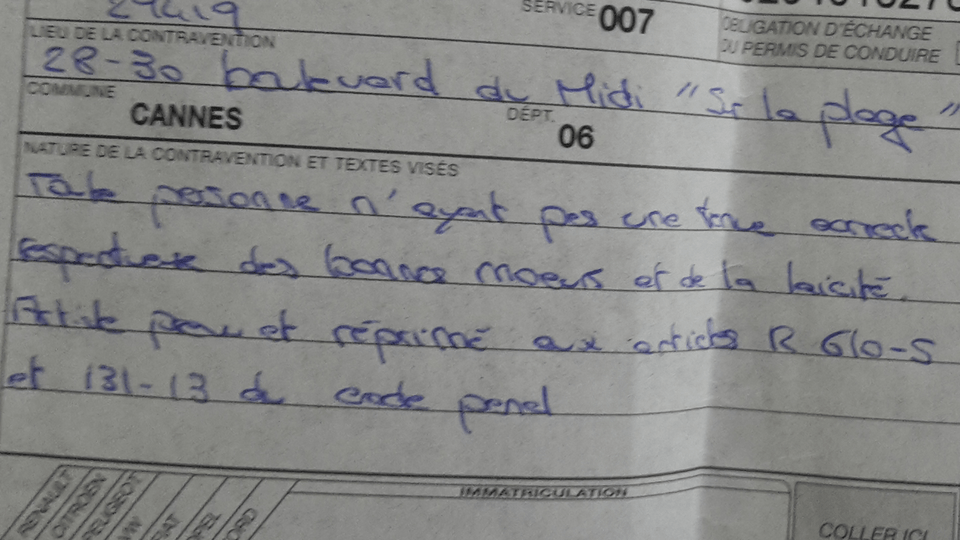 29419
SERVICE 007
OBLIGATION D'ÉCHANGE
DU PERMIS DE CONDUIRE
LIEU DE LA CONTRAVENTION
28-30 boulevard du Midi "Sr la plage"
COMMUNE
CANNES
DÉPT.
06
NATURE DE LA CONTRAVENTION ET TEXTES VISÉS
Toute personne n'ayant pas une tenue correcte
respectueuse des bonnes moeurs et de la laïcité.
prévu et réprimé aux articles R 610-5
et 131-13 du code penal
RENAULT
CITROEN
PEUGEOT
IMMATRICULATION
COLLER ICI